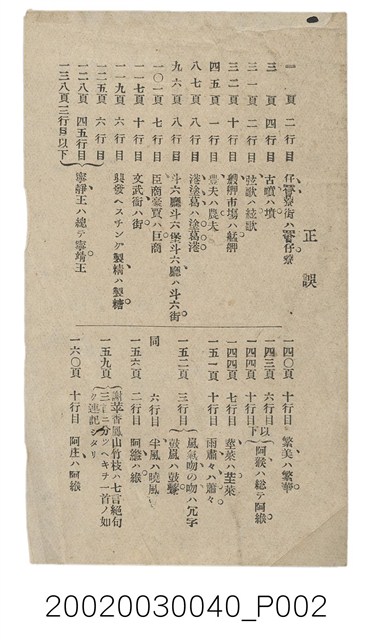 正誤
一頁 二行目 仔寮街ハ仔寮
三頁 四行目 古嘖ハ墳
三一頁 二行目 弦歌ハ絃歌
三二頁 十行目 艋舺市場ハ艋舺
四五頁 一行目 農夫ハ農夫
八七頁 八行目 港塗葛ハ塗葛港
九六頁 八行目 斗六廳斗六堡斗六廳ハ斗六街
一〇一頁 七行目 臣商豪賈ハ巨商
一一七頁 十行目 文武衙ハ街
一一九頁 六行目 興發ヘスチング製精ハ製糖
一二五頁 六行目
一二八頁 四五行目
一三八頁三行目以下
寧靜王ハ總テ寧靖王
一四〇頁 十行目 繁美ハ繁華
一四三頁 六行目以
一四四頁 十行目下
阿猴ハ総テ阿緱
一四四頁 七行目 莖菜ハ芏菜
一五一頁 十行目 雨肅々ハ蕭々
一五二頁 三行目
風氣吻の吻ハ冗字
鼓風ハ鼓聲
同 六行目 半風ハ曉風
一五六頁 二行目 阿緱ハ緱
一五九頁
謝苹香鳳山竹枝ハ七言絕句
三首ニ分ツヘキヲ一首ノ如
ク連記シタリ
一六〇頁 十行目 阿庄ハ阿緱
20020030040_P002